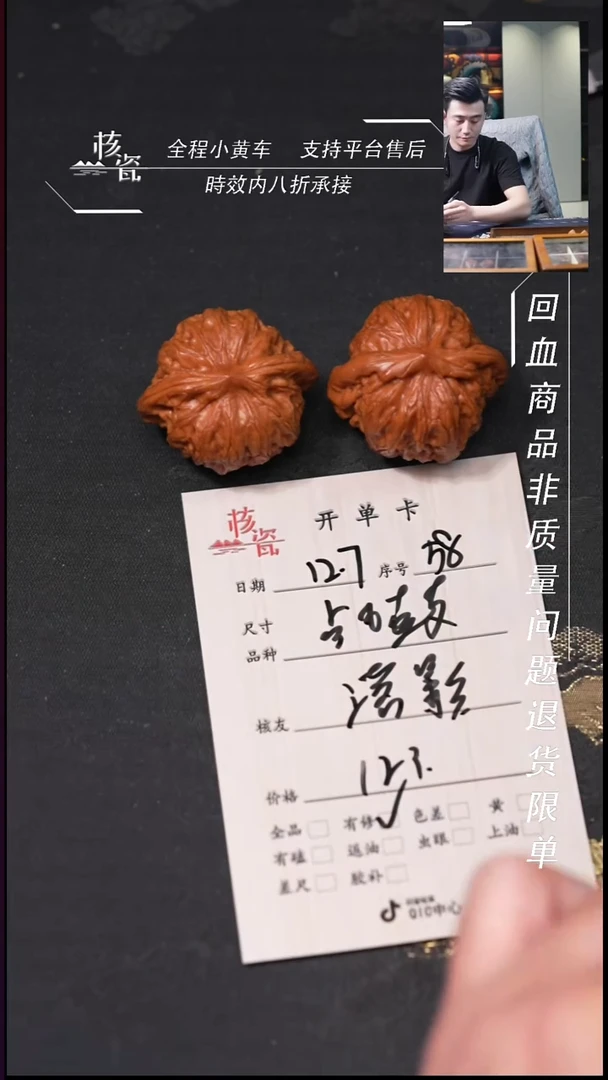 核瓷
全程小黄车 支持平台售后
時效内八折承接
回血商品非质量问题退货限单
核瓷 开单卡
日期 12.7 序号 58
尺寸
品种
核友
价格 123.
全品 有修 色差 黄
有磕 返油 虫眼 上油
差尺 胶补
QIC中心